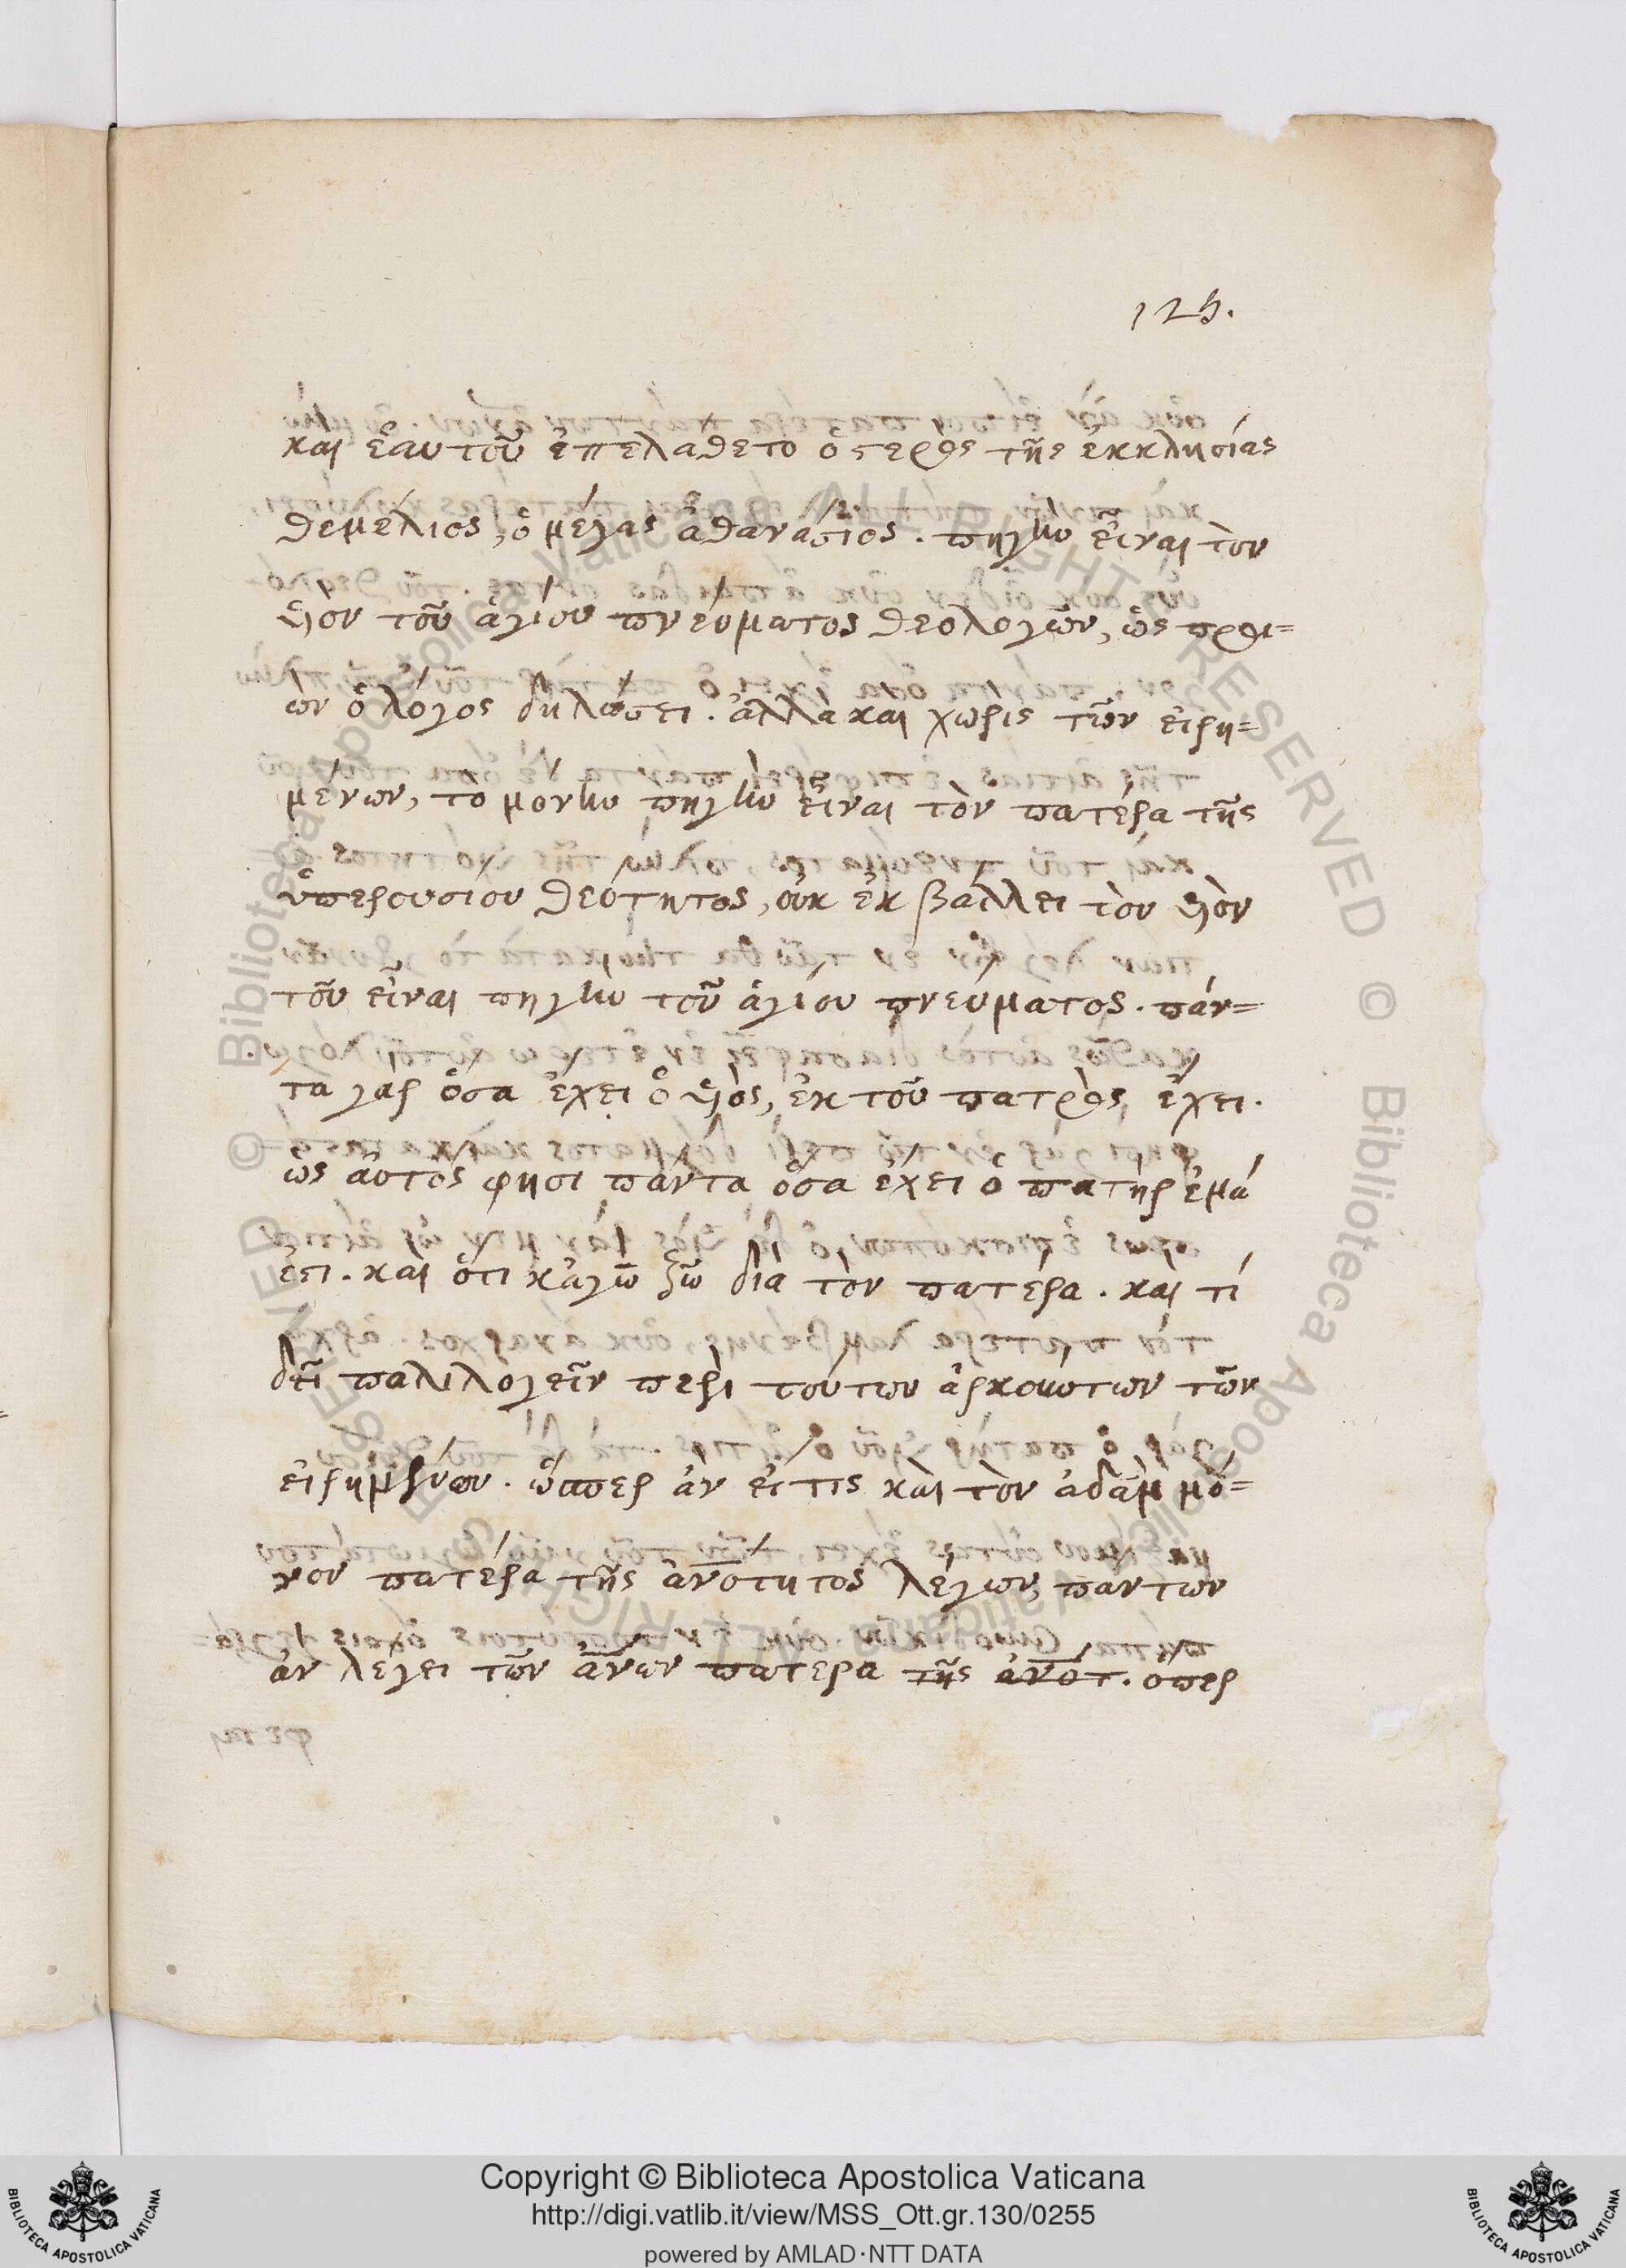 125.
καὶ ἑαυτοῦ ἐπελάθετο ὁ στερρὸς τῆς ἐκκλησίας
θεμέλιος, ὁ μέγας ἀθανάσιος. πηγὴν εἶναι τὸν
υἱὸν τοῦ ἁγίου πνεύματος θεολογῶν, ὡς προϊ=
ὼν ὁ λόγος δηλώσει. ἀλλὰ καὶ χωρὶς τῶν εἰρη=
μένων, τὸ μόνην πηγὴν εἶναι τὸν πατέρα τῆς
ὑπερουσίου θεότητος, οὐκ ἐκβάλλει τὸν υἱὸν
τοῦ εἶναι πηγὴν τοῦ ἁγίου πνεύματος. πάν=
τα γὰρ ὅσα ἔχει ὁ υἱὸς, ἐκ τοῦ πατρὸς ἔχει.
ὡς αὐτός φησι πάντα ὅσα ἔχει ὁ πατὴρ ἐμά
ἐστι. καὶ ὅτι κἀγὼ ζῶ διὰ τὸν πατέρα. καὶ τί
δεῖ παλιλλογεῖν περὶ τούτων ἀρκούντων τῶν
εἰρημένων. ὥσπερ ἂν εἴ τις καὶ τὸν ἀδὰμ μό=
νον πατέρα τῆς ἀνότητος λέγων, πάντων
ἂν λέγει τῶν ἀνων πατέρα τῆς ἀνοτ. ὅπερ
Copyright © Biblioteca Apostolica Vaticana
http://digi.vatlib.it/view/MSS_Ott.gr.130/0255
powered by AMLAD·NTT DATA
BIBLIOTECA APOSTOLICA VATICANA
BIBLIOTECA APOSTOLICA VATICANA